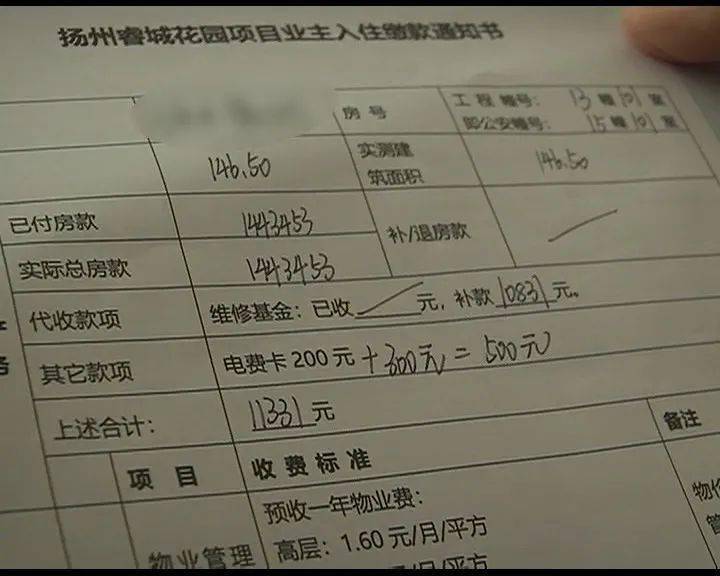 扬州睿城花园项目业主入住缴款通知书
房号 工程幢号: 13 幢 101 室
即公安幢号: 15 幢 101 室
146.50 实测建筑面积 146.50
已付房款 1443453 补/退房款
实际总房款 1443453
代收款项 维修基金: 已收 元, 补款 10831 元。
其它款项 电费卡 200 元 + 300元 = 500元
上述合计: 11331 元
项 目 收 费 标 准 备注
预收一年物业费:
物业管理 高层: 1.60 元/月/平方 物价